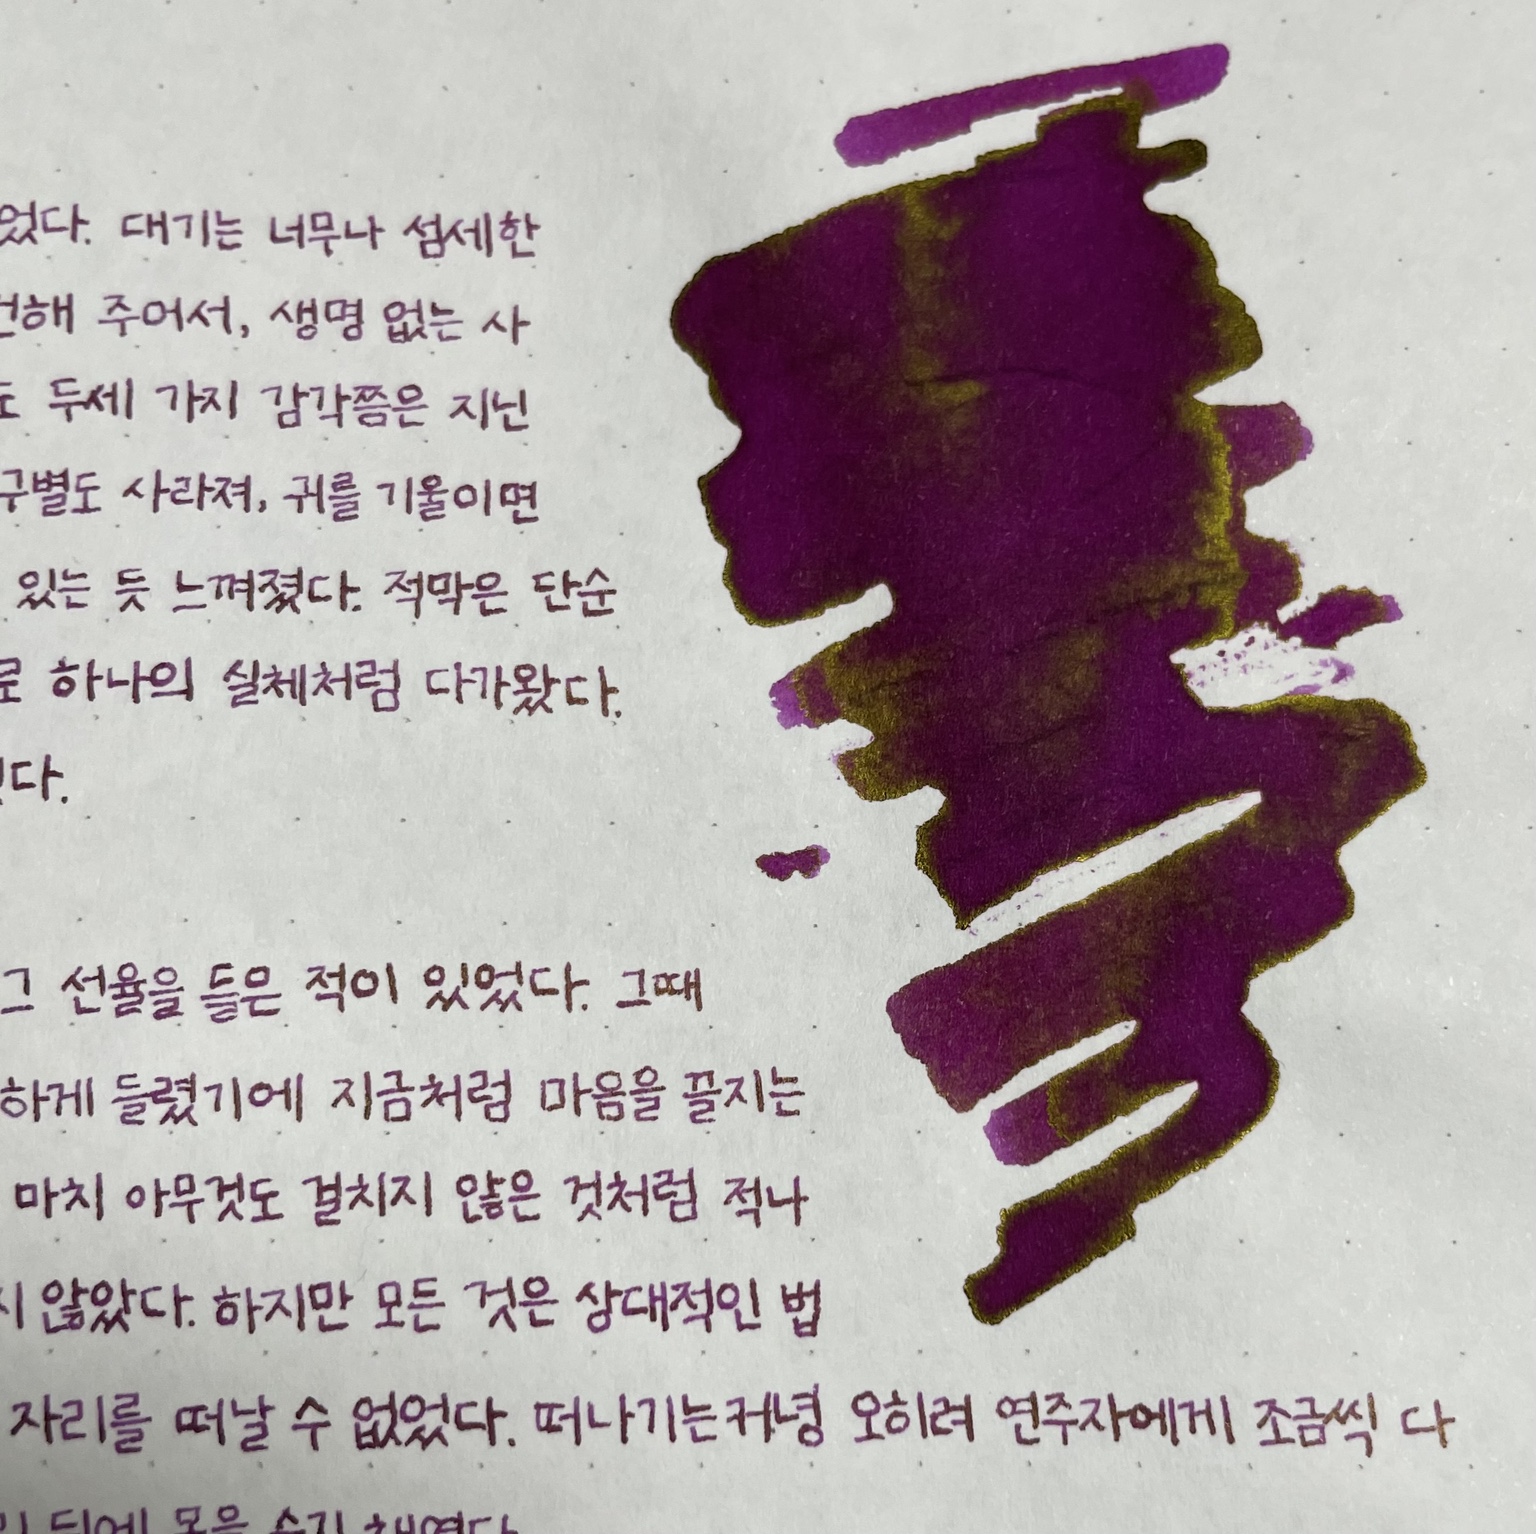 었다. 대기는 너무나 섬세한
해 주어서, 생명 없는 사
도 두세 가지 감각쯤은 지닌
구별도 사라져, 귀를 기울이면
있는 듯 느껴졌다. 적막은 단순
로 하나의 실체처럼 다가왔다.
다.
그 선율을 들은 적이 있었다. 그때
하게 들렸기에 지금처럼 마음을 끌지는
마치 아무것도 걸치지 않은 것처럼 적나
지 않았다. 하지만 모든 것은 상대적인 법
자리를 떠날 수 없었다. 떠나기는커녕 오히려 연주자에게 조금씩 다
뒤에 몸을 숨긴 채였다.